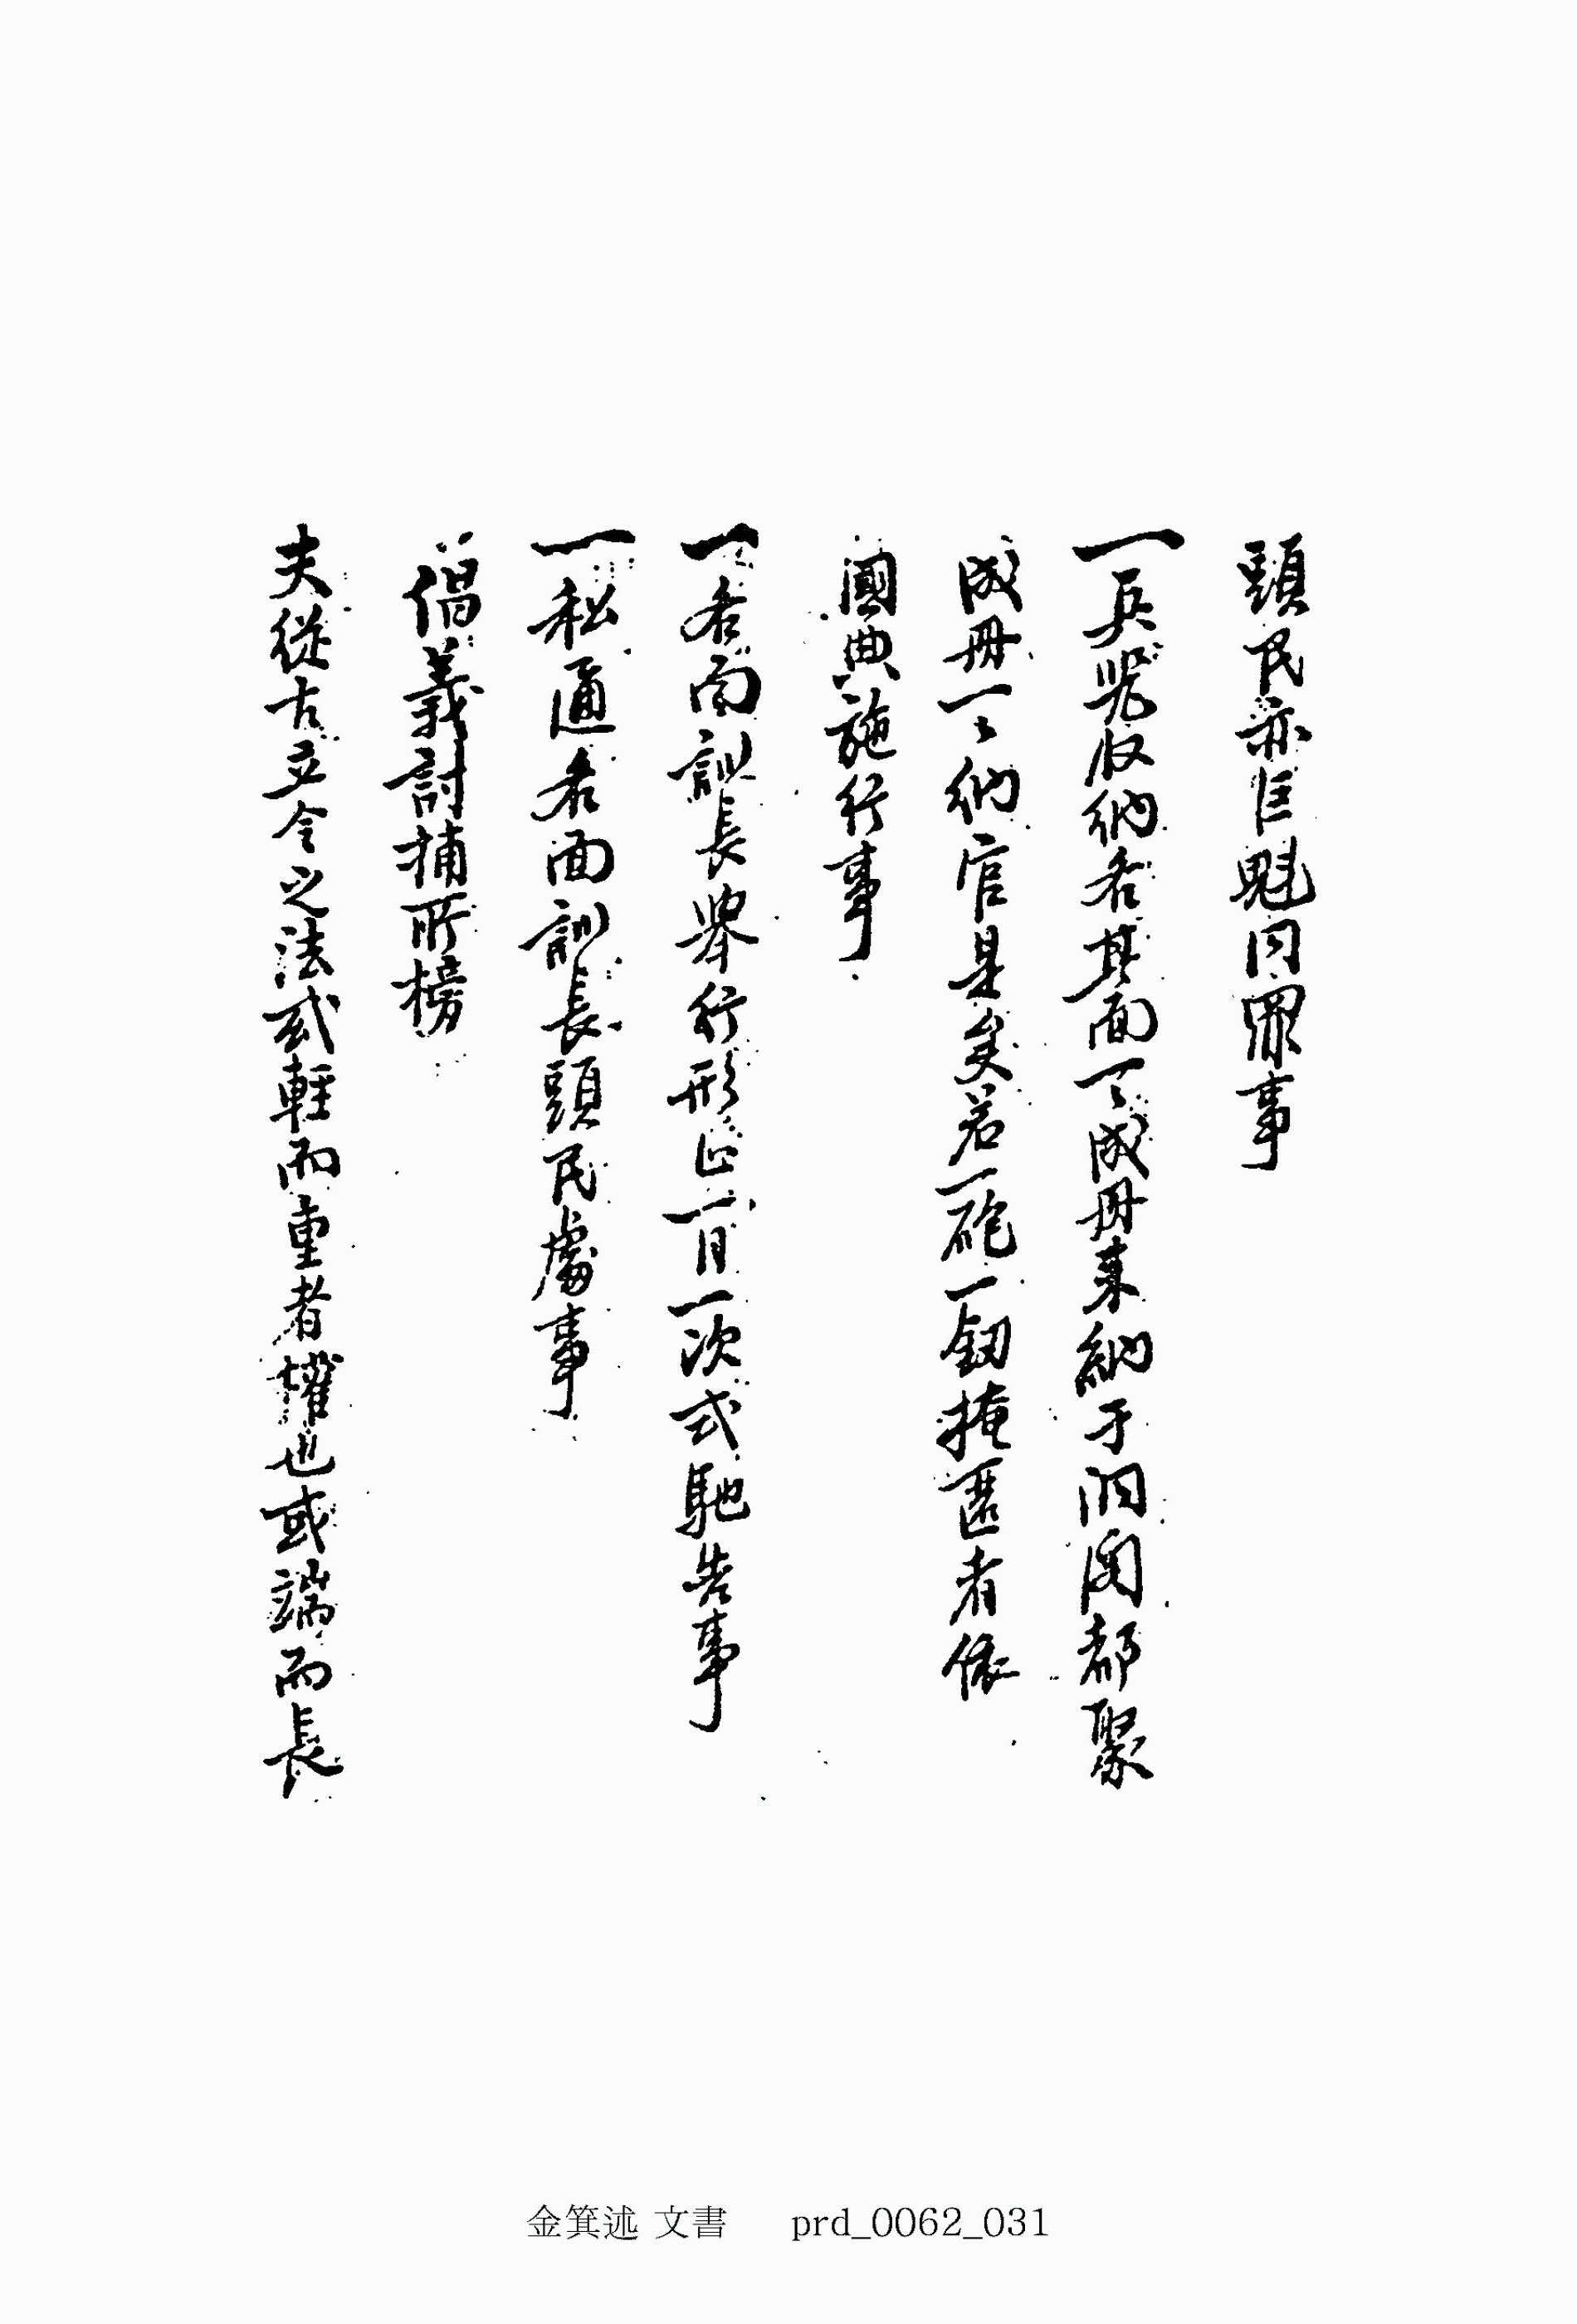 頭民亦巨魁同罪事
一兵器收納各其面一〻成册來納于洞閣都聚
成册一〻納官是矣若一砲一釼掩匿者依
國典施行事
一各面訓長擧行形止一月一次式馳告事
一私通各面訓長頭民處事
倡義討捕所榜
夫從古立令之法或輕而重者權也或端而長
金箕述 文書 prd_0062_031